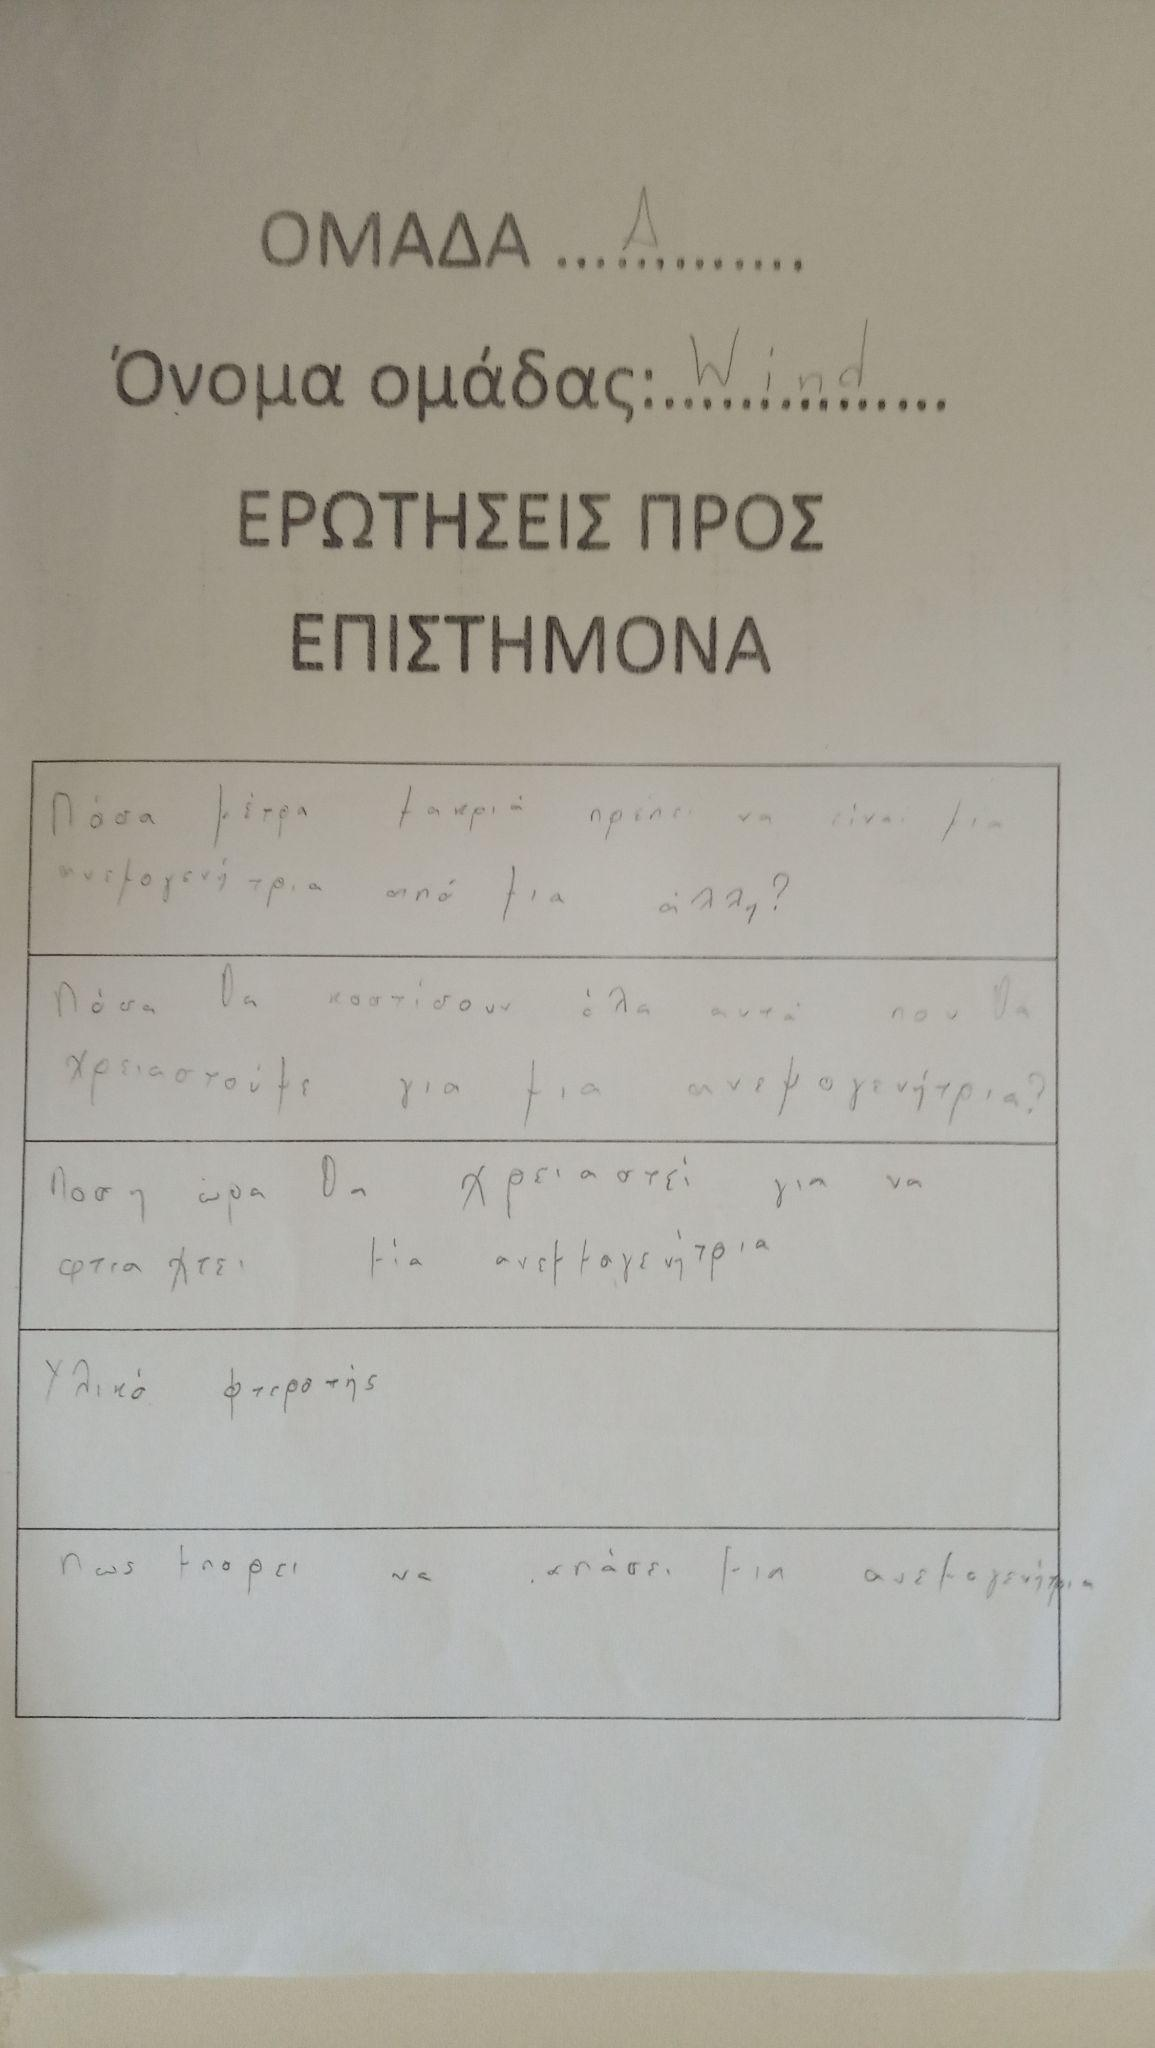 ΟΜΑΔΑ ....Δ.........
Όνομα ομάδας:..Wind...
ΕΡΩΤΗΣΕΙΣ ΠΡΟΣ
ΕΠΙΣΤΗΜΟΝΑ
Πόσα μέτρα μακριά πρέπει να είναι μια
ανεμογενήτρια από μια άλλη?
Πόσα θα κοστίσουν όλα αυτά που θα
χρειαστούμε για μια ανεμογενήτρια?
Ποση ώρα θα χρειαστεί για να
φτιαχτει μία ανεμμογενήτρια
Υλικό φτεροτής
Πως μπορει να σπάσει μια ανεμογενήτρια